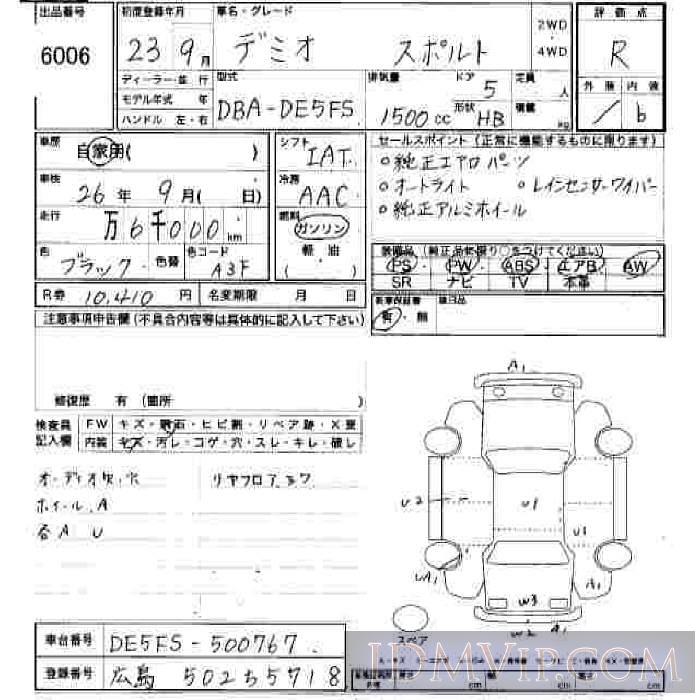 出品番号
6006
初度登録年月
23 9月
車名・グレード
デミオ スポルト
2WD
・
4WD
評価点
R
ディーラー・並行
モデル年式 年
ハンドル 左・右
型式
DBA-DE5FS
排気量
1500cc
ドア
5
形状
HB
定員
人
積載
kg
外装 内装
/ b
車歴
自家用( )
車検
26年 9月( 日)
走行
万6千000km
色
ブラック
色替
色コード
A3F
シフト
IAT
冷房
AAC
燃料
ガソリン
軽油
( )
セールスポイント(正常に機能するものに限ります)
○純正エアロパーツ
○オートライト ○レインセンサーワイパー
○純正アルミホイール
装備品(純正品に限り○をつけてください)
PS PW ABS エアB AW
SR ナビ TV 本革
新車保証書
有・無
R券 10,410円
名変期限 月 日
注意事項申告欄(不具合内容等は具体的に記入して下さい)
修復歴 有(箇所
検査員
記入欄
FW キズ・飛石・ヒビ割・リペア跡・X要
内装 キズ・汚レ・コゲ・穴・スレ・キレ・破レ
オーディオ欠、穴
ホイール、A
各A U
リヤフロア
A1
U2
U1
U1
UA1
A1
W3
W2 A1
スペア
車台番号
DE5FS-500767
登録番号
広島 502
5718
cm cm cm
JDMVIP.COM